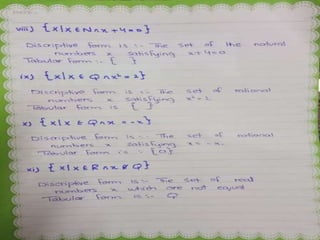 viii) {x|x ∈ N ∧ x + 4 = 0}
Discriptive form is :- The set of the natural
numbers x satisfying x+4=0.
Tabular form :- { }
ix) {x|x ∈ Q ∧ x² = 2}
Discriptive form is :- The set of rational
numbers x satisfying x²=2.
Tabular form is { }
x) {x|x ∈ Q ∧ x = -x}
Discriptive form is :- The set of rational
numbers x satisfying x = -x.
Tabular form is :- {0}
xi) {x|x ∈ R ∧ x ∉ Q}
Discriptive form is :- The set of real
numbers x which are not equal
Tabular form is :- Q